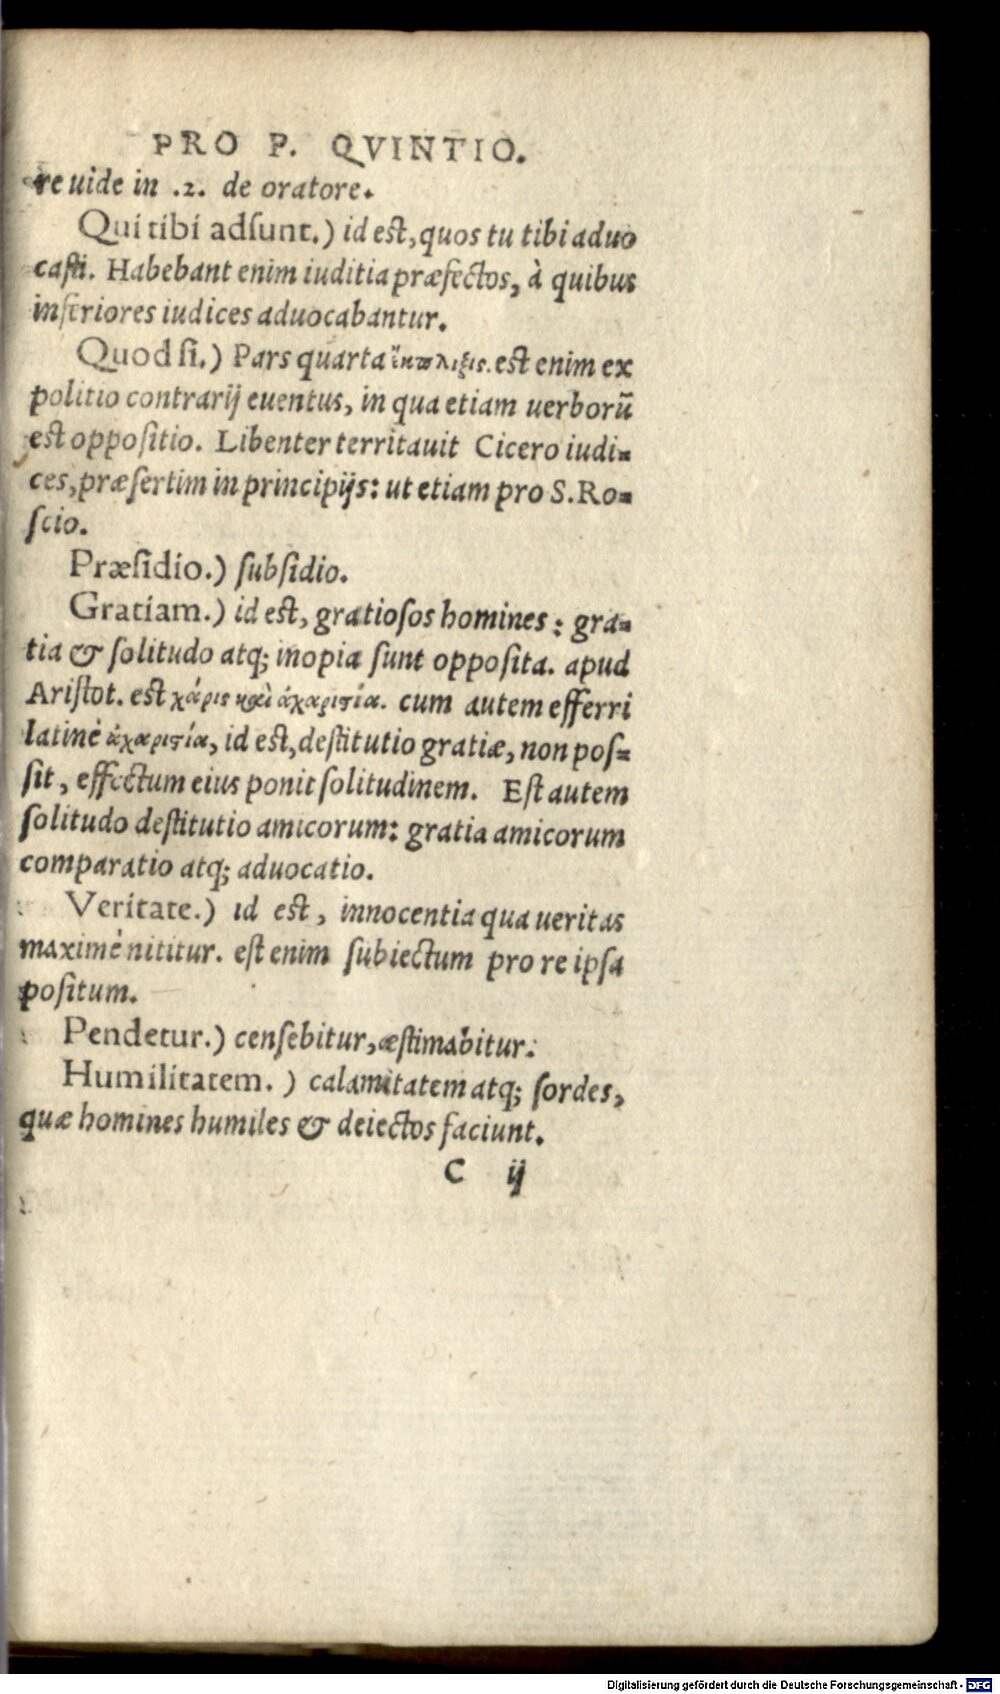 PRO P. QVINTIO.
re uide in .2. de oratore.
Qui tibi adſunt.) id eſt, quos tu tibi aduo
caſti. Habebant enim iuditia præfectos, à quibus
inferiores iudices aduocabantur.
Quod ſi.) Pars quarta ἔκπληξις. eſt enim ex
politio contrarij euentus, in qua etiam uerborũ
eſt oppoſitio. Libenter territauit Cicero iudi-
ces, præſertim in principijs: ut etiam pro S. Ro-
ſcio.
Præſidio.) ſubſidio.
Gratiam.) id eſt, gratioſos homines: gra-
tia & ſolitudo atq; inopia ſunt oppoſita. apud
Ariſtot. eſt χάρις καὶ ἀχαριστία. cum autem efferri
latinè ἀχαριστία, id eſt, deſtitutio gratiæ, non poſ-
ſit, effectum eius ponit ſolitudinem. Eſt autem
ſolitudo deſtitutio amicorum: gratia amicorum
comparatio atq; aduocatio.
Veritate.) id eſt, innocentia qua ueritas
maximè nititur. eſt enim ſubiectum pro re ipſa
poſitum.
Pendetur.) cenſebitur, æſtimabitur.
Humilitatem.) calamitatem atq; ſordes,
quæ homines humiles & deiectos faciunt.
C ij
Digitalisierung gefördert durch die Deutsche Forschungsgemeinschaft - DFG